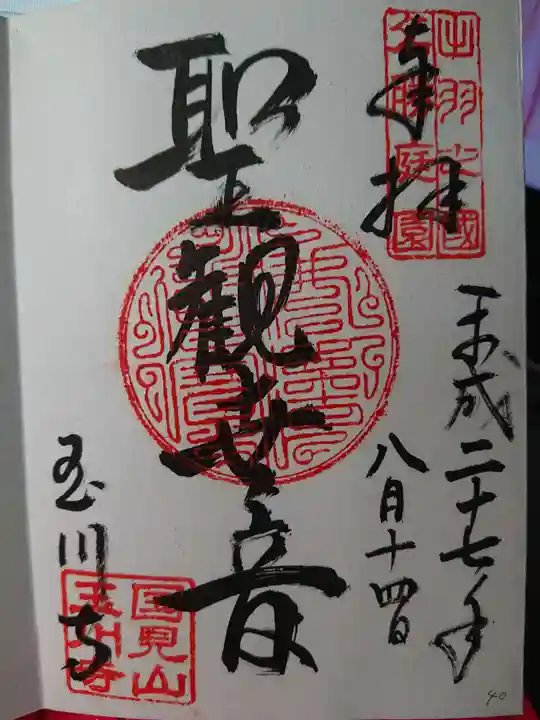 奉拝
出羽之國
名勝庭園
平成二十七年
八月十四日
聖観世音
玉川寺
国見山
玉川寺
40